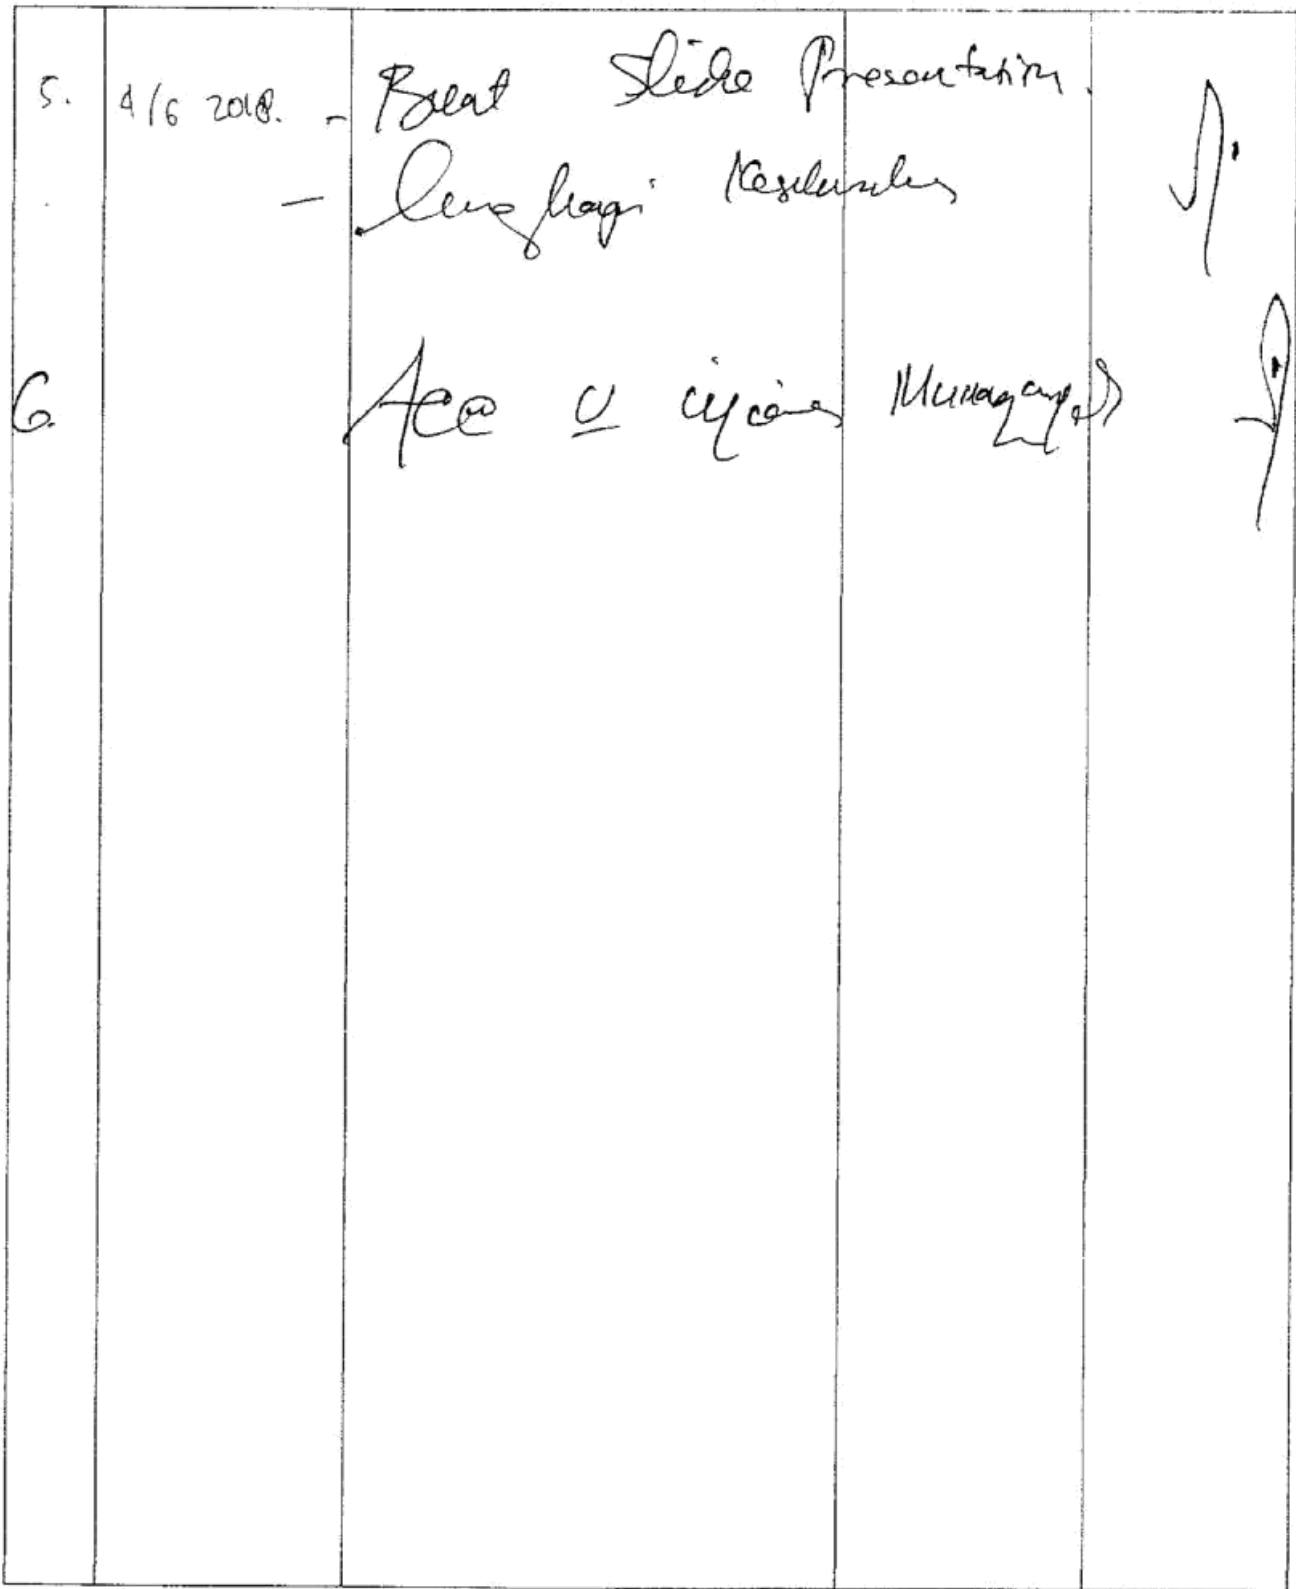 5. 4/6 2018. - Buat Slide Presentation.
- Lengkapi Keseluruhan
6. Acc U ujian Munaqasyah